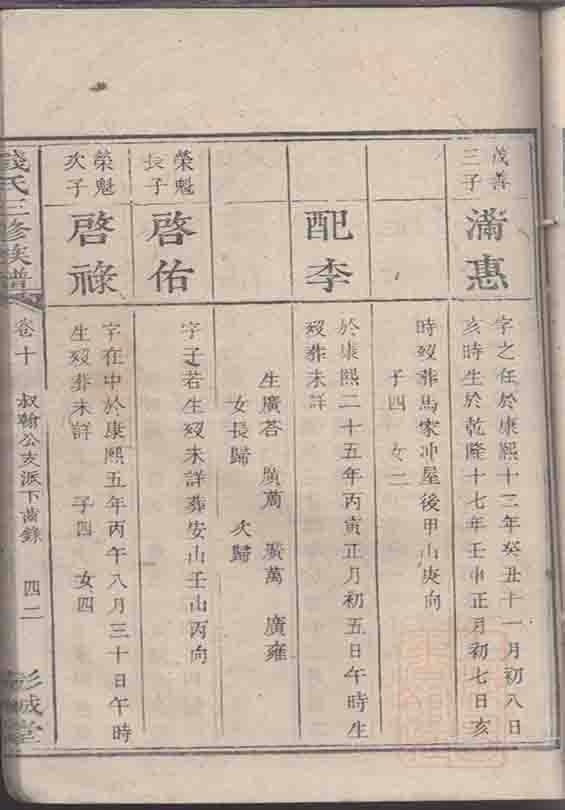 茂善
三子
滿惠
字之任於康熙十二年癸丑十一月初八日
亥時生於乾隆十七年壬申正月初七日亥
時歿葬馬家冲屋後甲山庚向
子四 女二
配李
於康熙二十五年丙寅正月初五日午時生
歿葬未詳
生廣荅 廣萬 廣萬 廣雍
女長歸 次歸
榮魁
長子
啓佑
字子若生歿未詳葬安山壬山丙向
榮魁
次子
啓祿
字在中於康熙五年丙午八月三十日午時
生歿葬未詳 子四 女四
錢氏三修族譜
卷十
叔翰公支派下齒錄
四二
彭城堂